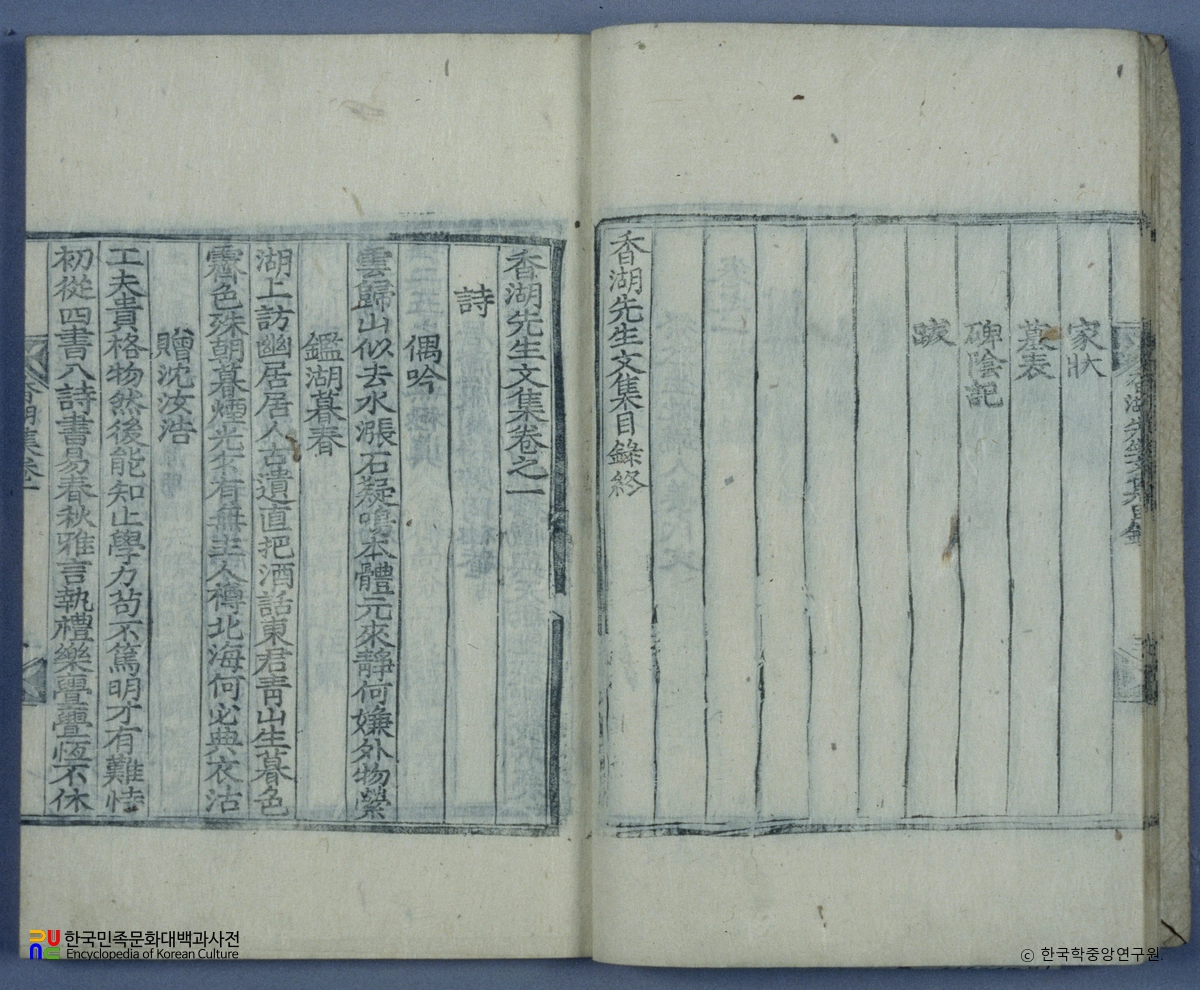 家狀
墓表
碑陰記
跋
香湖先生文集目錄終
香湖先生文集卷之一
詩
偶吟
雲歸山似去水漲石疑鳴本體元來靜何嫌外物縈
鑑湖暮春
湖上訪幽居居人古遺直把酒話東君靑山生暮色
霽色殊朝暮煙光有無主人樽北海何必典衣沽
贈沈汝浩
工夫貴格物然後能知止學力苟不篤明才有難恃
初從四書入詩書易春秋雅言執禮樂亹亹恆不休
한국민족문화대백과사전
Encyclopedia of Korean Culture
© 한국학중앙연구원.